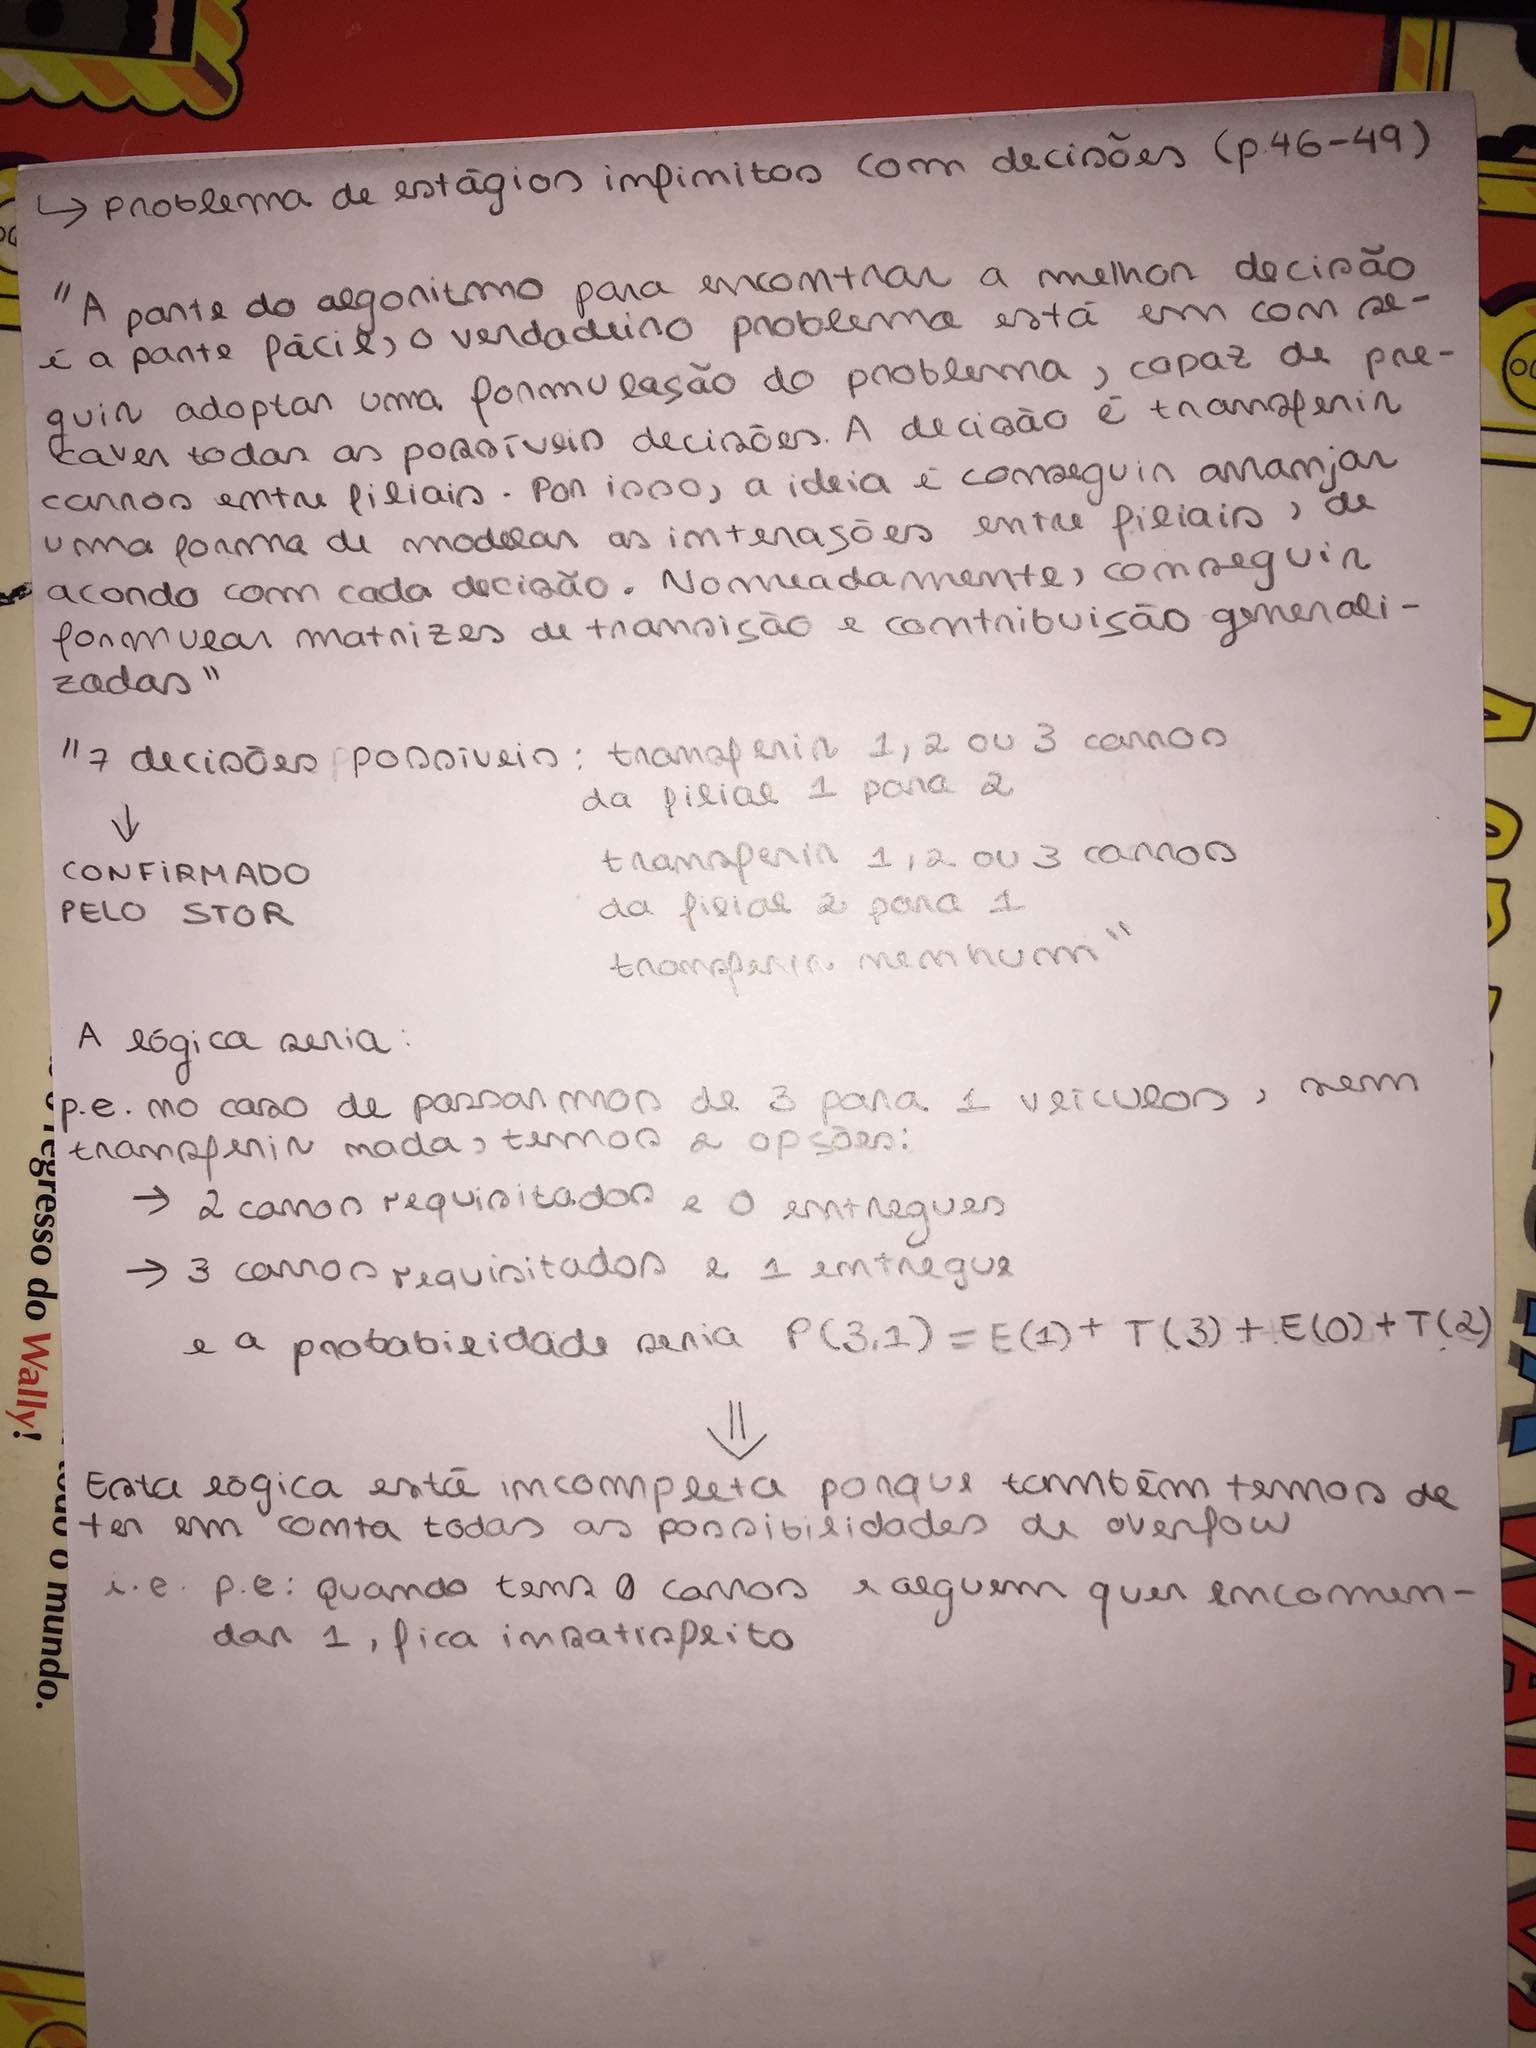 ↳ problema de estágios infinitos com decisões (p.46-49)
"A parte do algoritmo para encontrar a melhor decisão
é a parte fácil, o verdadeiro problema está em conse-
guir adoptar uma formulação do problema, capaz de pre-
caver todas as possíveis decisões. A decisão é transferir
carros entre filiais. Por isso, a ideia é conseguir arranjar
uma forma de modelar as interações entre filiais, de
acordo com cada decisão. Nomeadamente, conseguir
formular matrizes de transição e contribuição generali-
zadas"
"7 decisões possíveis: transferir 1, 2 ou 3 carros
da filial 1 para 2
↓
CONFIRMADO
PELO STOR
transferir 1, 2 ou 3 carros
da filial 2 para 1
transferir nenhum"
A lógica seria:
p.e. no caso de passarmos de 3 para 1 veículos, sem
transferir nada, temos 2 opções:
→ 2 carros requisitados e 0 entregues
→ 3 carros requisitados e 1 entregue
e a probabilidade seria P(3,1) = E(1)+ T(3) + E(0)+T(2)
⇓
Esta lógica está incompleta porque também temos de
ter em conta todas as possibilidades de overflow
i.e. p.e: quando tens 0 carros e alguem quer encomen-
dar 1, fica insatisfeito
o regresso do Wally!
todo o mundo.